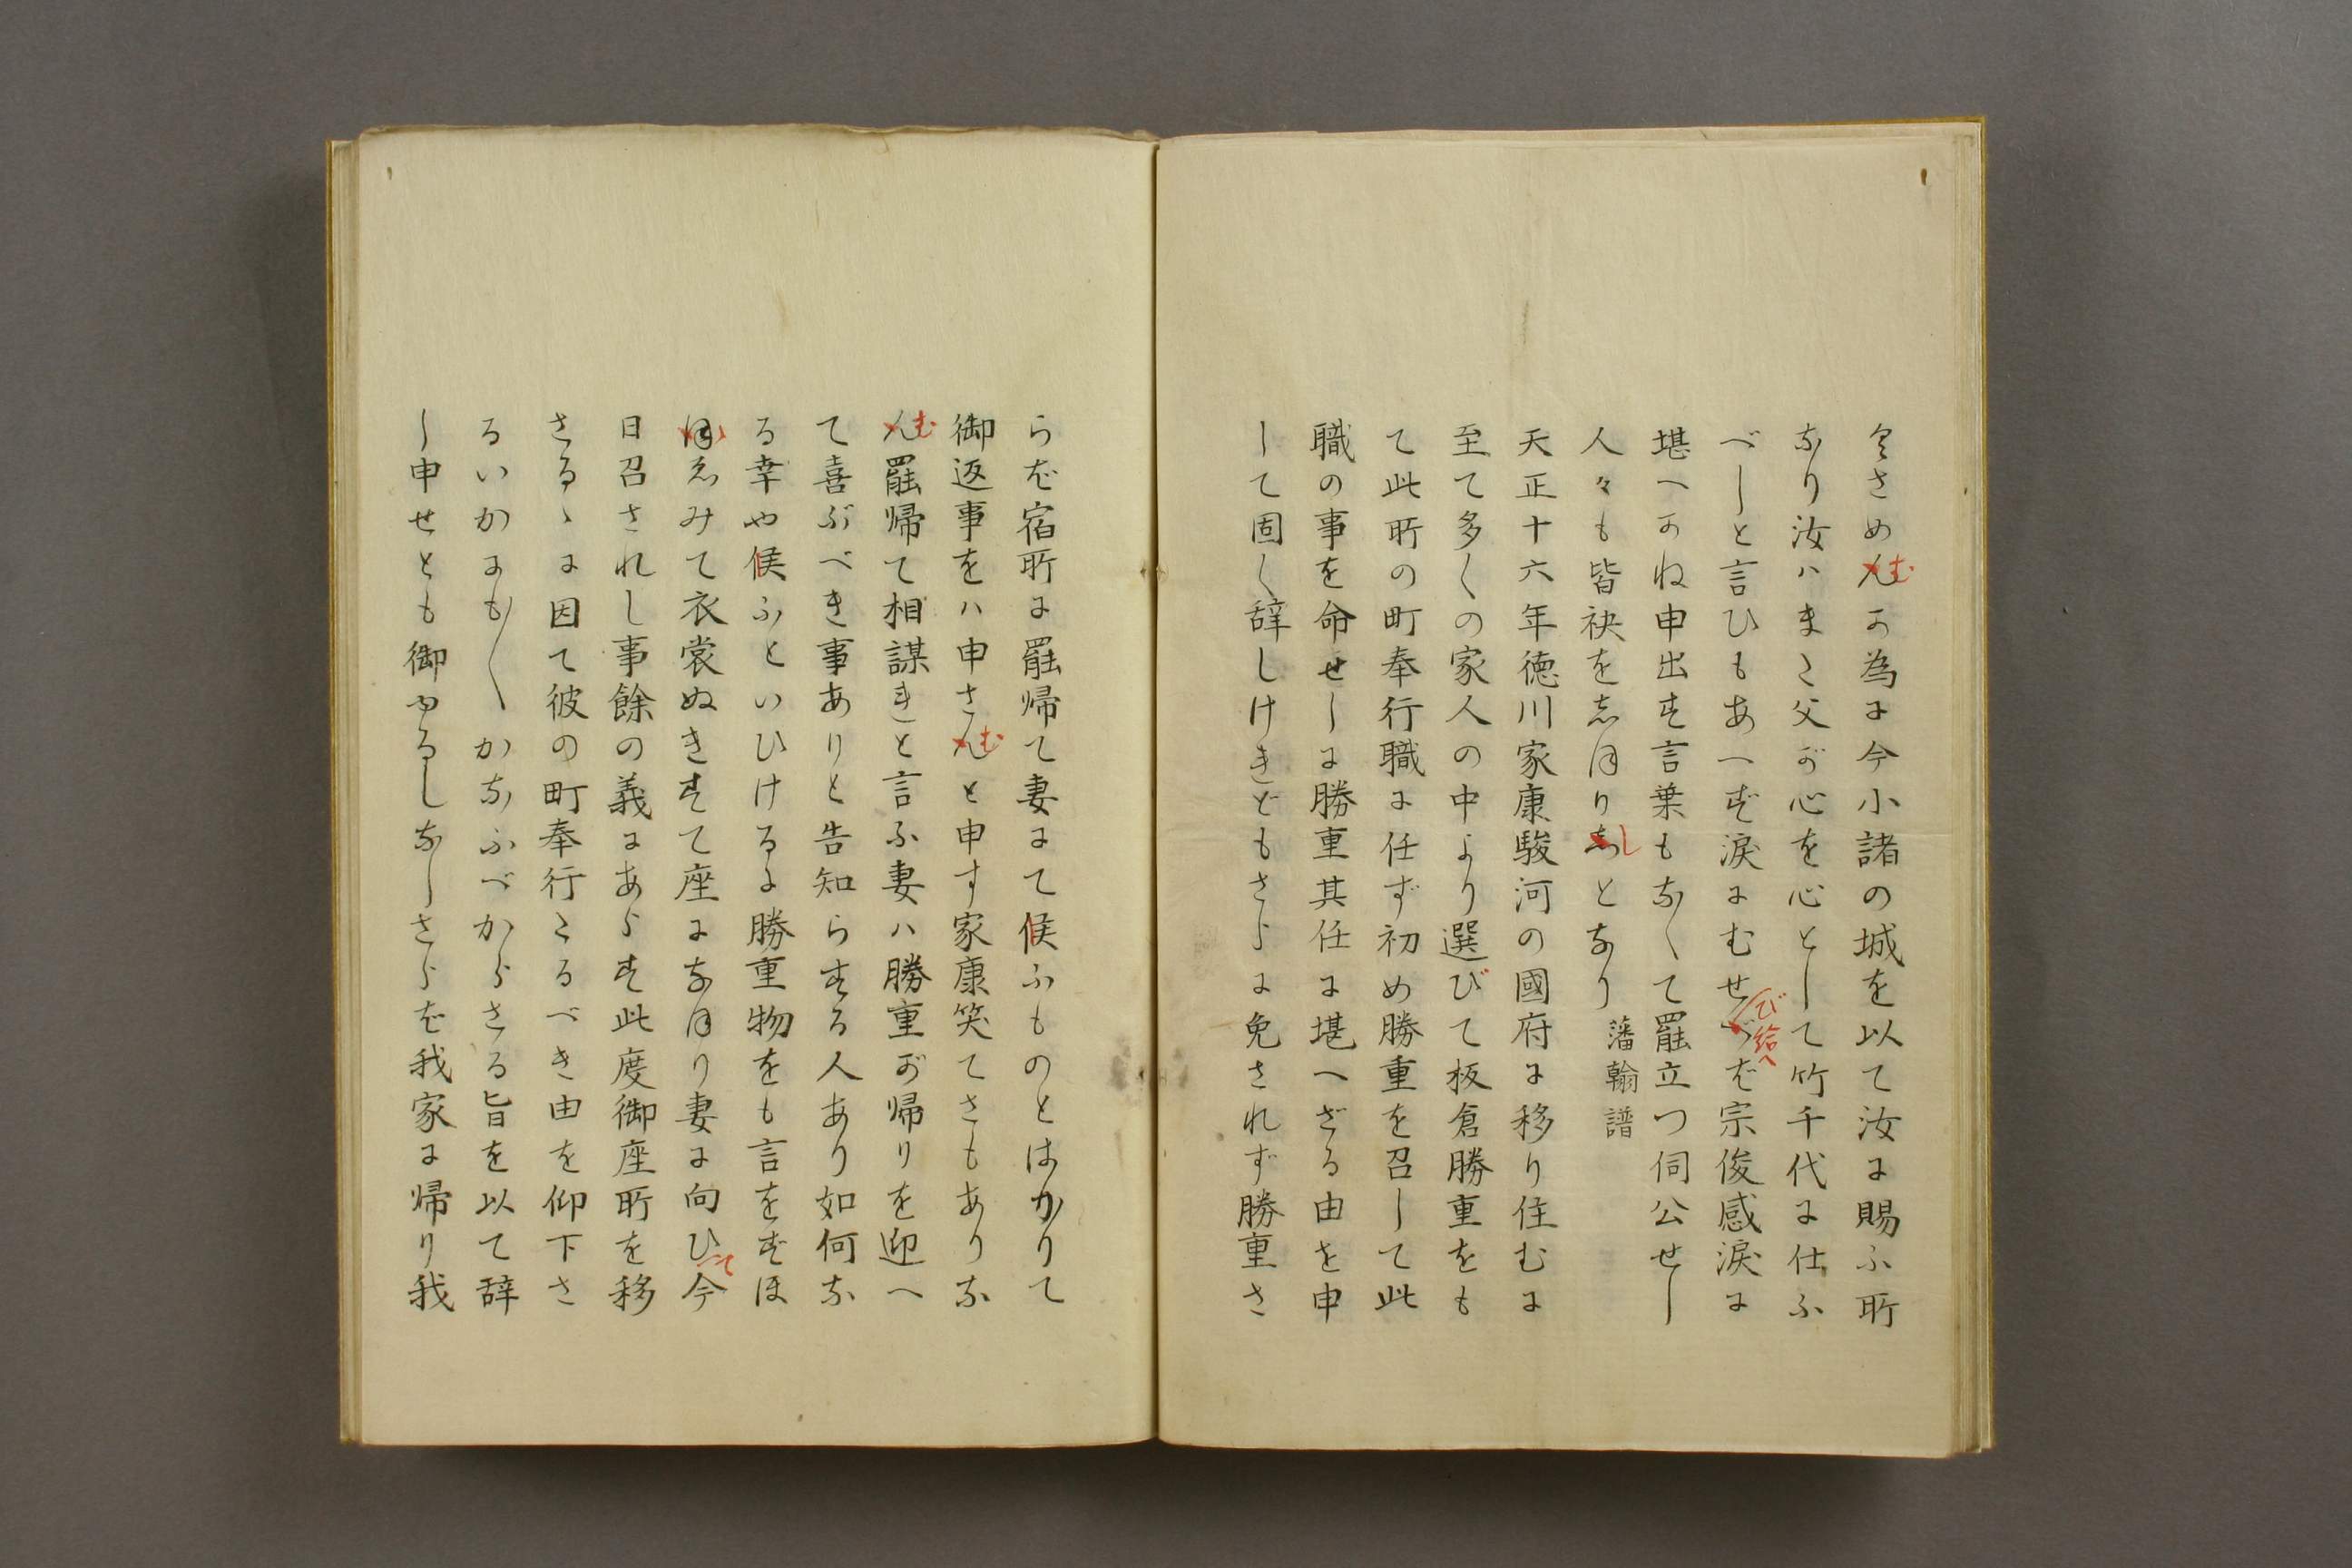 くさめむか為に今小諸の城を以て汝に賜ふ所
なり汝ハまた父が心を心として竹千代に仕ふ
べしと言ひもあへず涙にむせび給へば宗俊感涙に
堪へかね申出す言葉もなくて罷立つ伺公せし
人々も皆袂をしほりしとなり 藩翰譜
天正十六年徳川家康駿河の國府に移り住むに
至て多くの家人の中より選びて板倉勝重をも
て此所の町奉行職に任ず初め勝重を召して此
職の事を命せしに勝重其任に堪へざる由を申
して固く辞しけれどもさらに免されず勝重さ
らば宿所に罷帰て妻にて候ふものとはかりて
御返事をハ申さむと申す家康笑てさもありな
む罷帰て相謀れと言ふ妻ハ勝重が帰りを迎へ
て喜ぶべき事ありと告知らする人あり如何な
る幸や候ふといひけるに勝重物をも言はずほ
ゝゑみて衣裳ぬきすて座になほり妻に向ひて今
日召されし事餘の義にあらす此度御座所を移
さるゝに因て彼の町奉行たるべき由を仰下さ
るいかにも〳〵かなふべからさる旨を以て辞
し申せとも御ゆるしなしさらば我家に帰り我